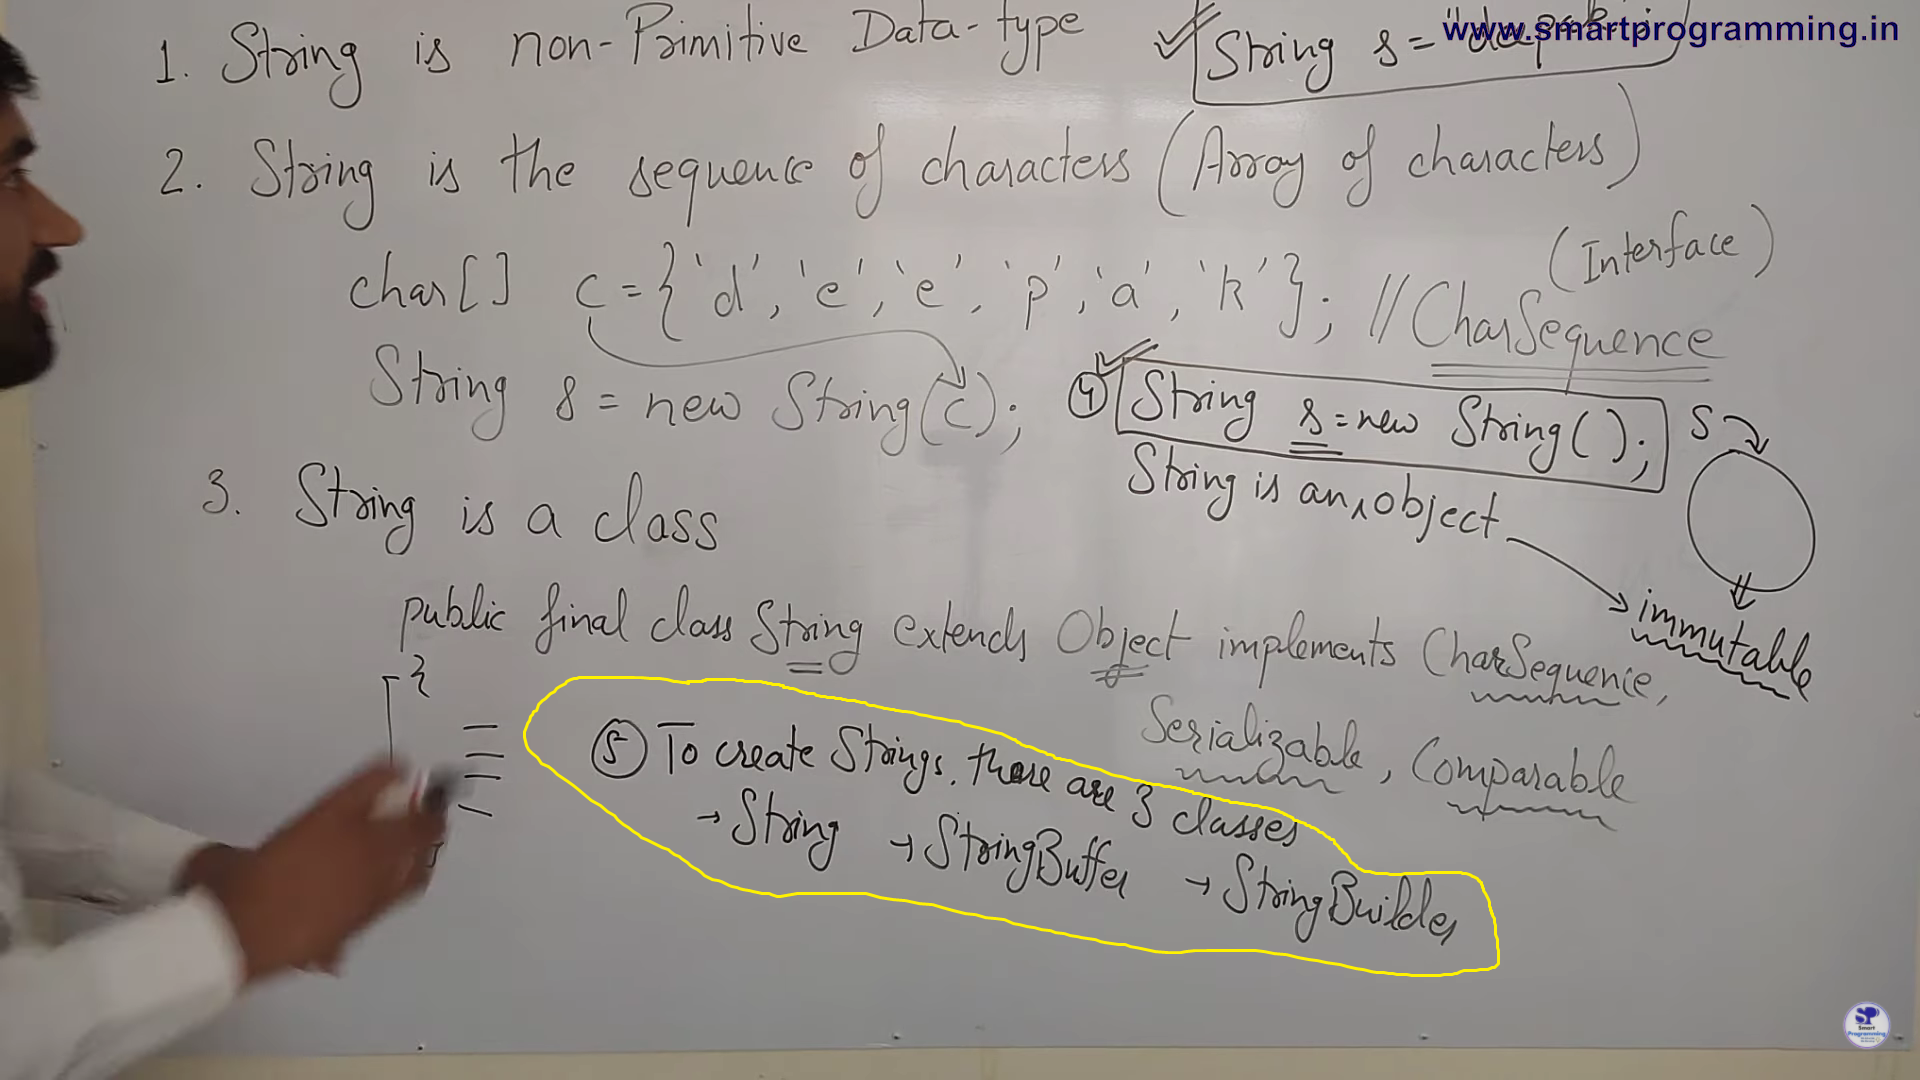 www.smartprogramming.in
1. String is non-Primitive Data-type
String s =
2. String is the sequence of characters (Array of characters)
(Interface)
char[] c = {'d', 'e', 'e', 'p', 'a', 'k'}; // CharSequence
String s = new String(c);
4 String s = new String();
S
String is an object
immutable
3. String is a class
public final class String extends Object implements CharSequence,
Serializable, Comparable
{
5 To create Strings, there are 3 classes
→ String → StringBuffer → StringBuilder
SP
Smart
Programming